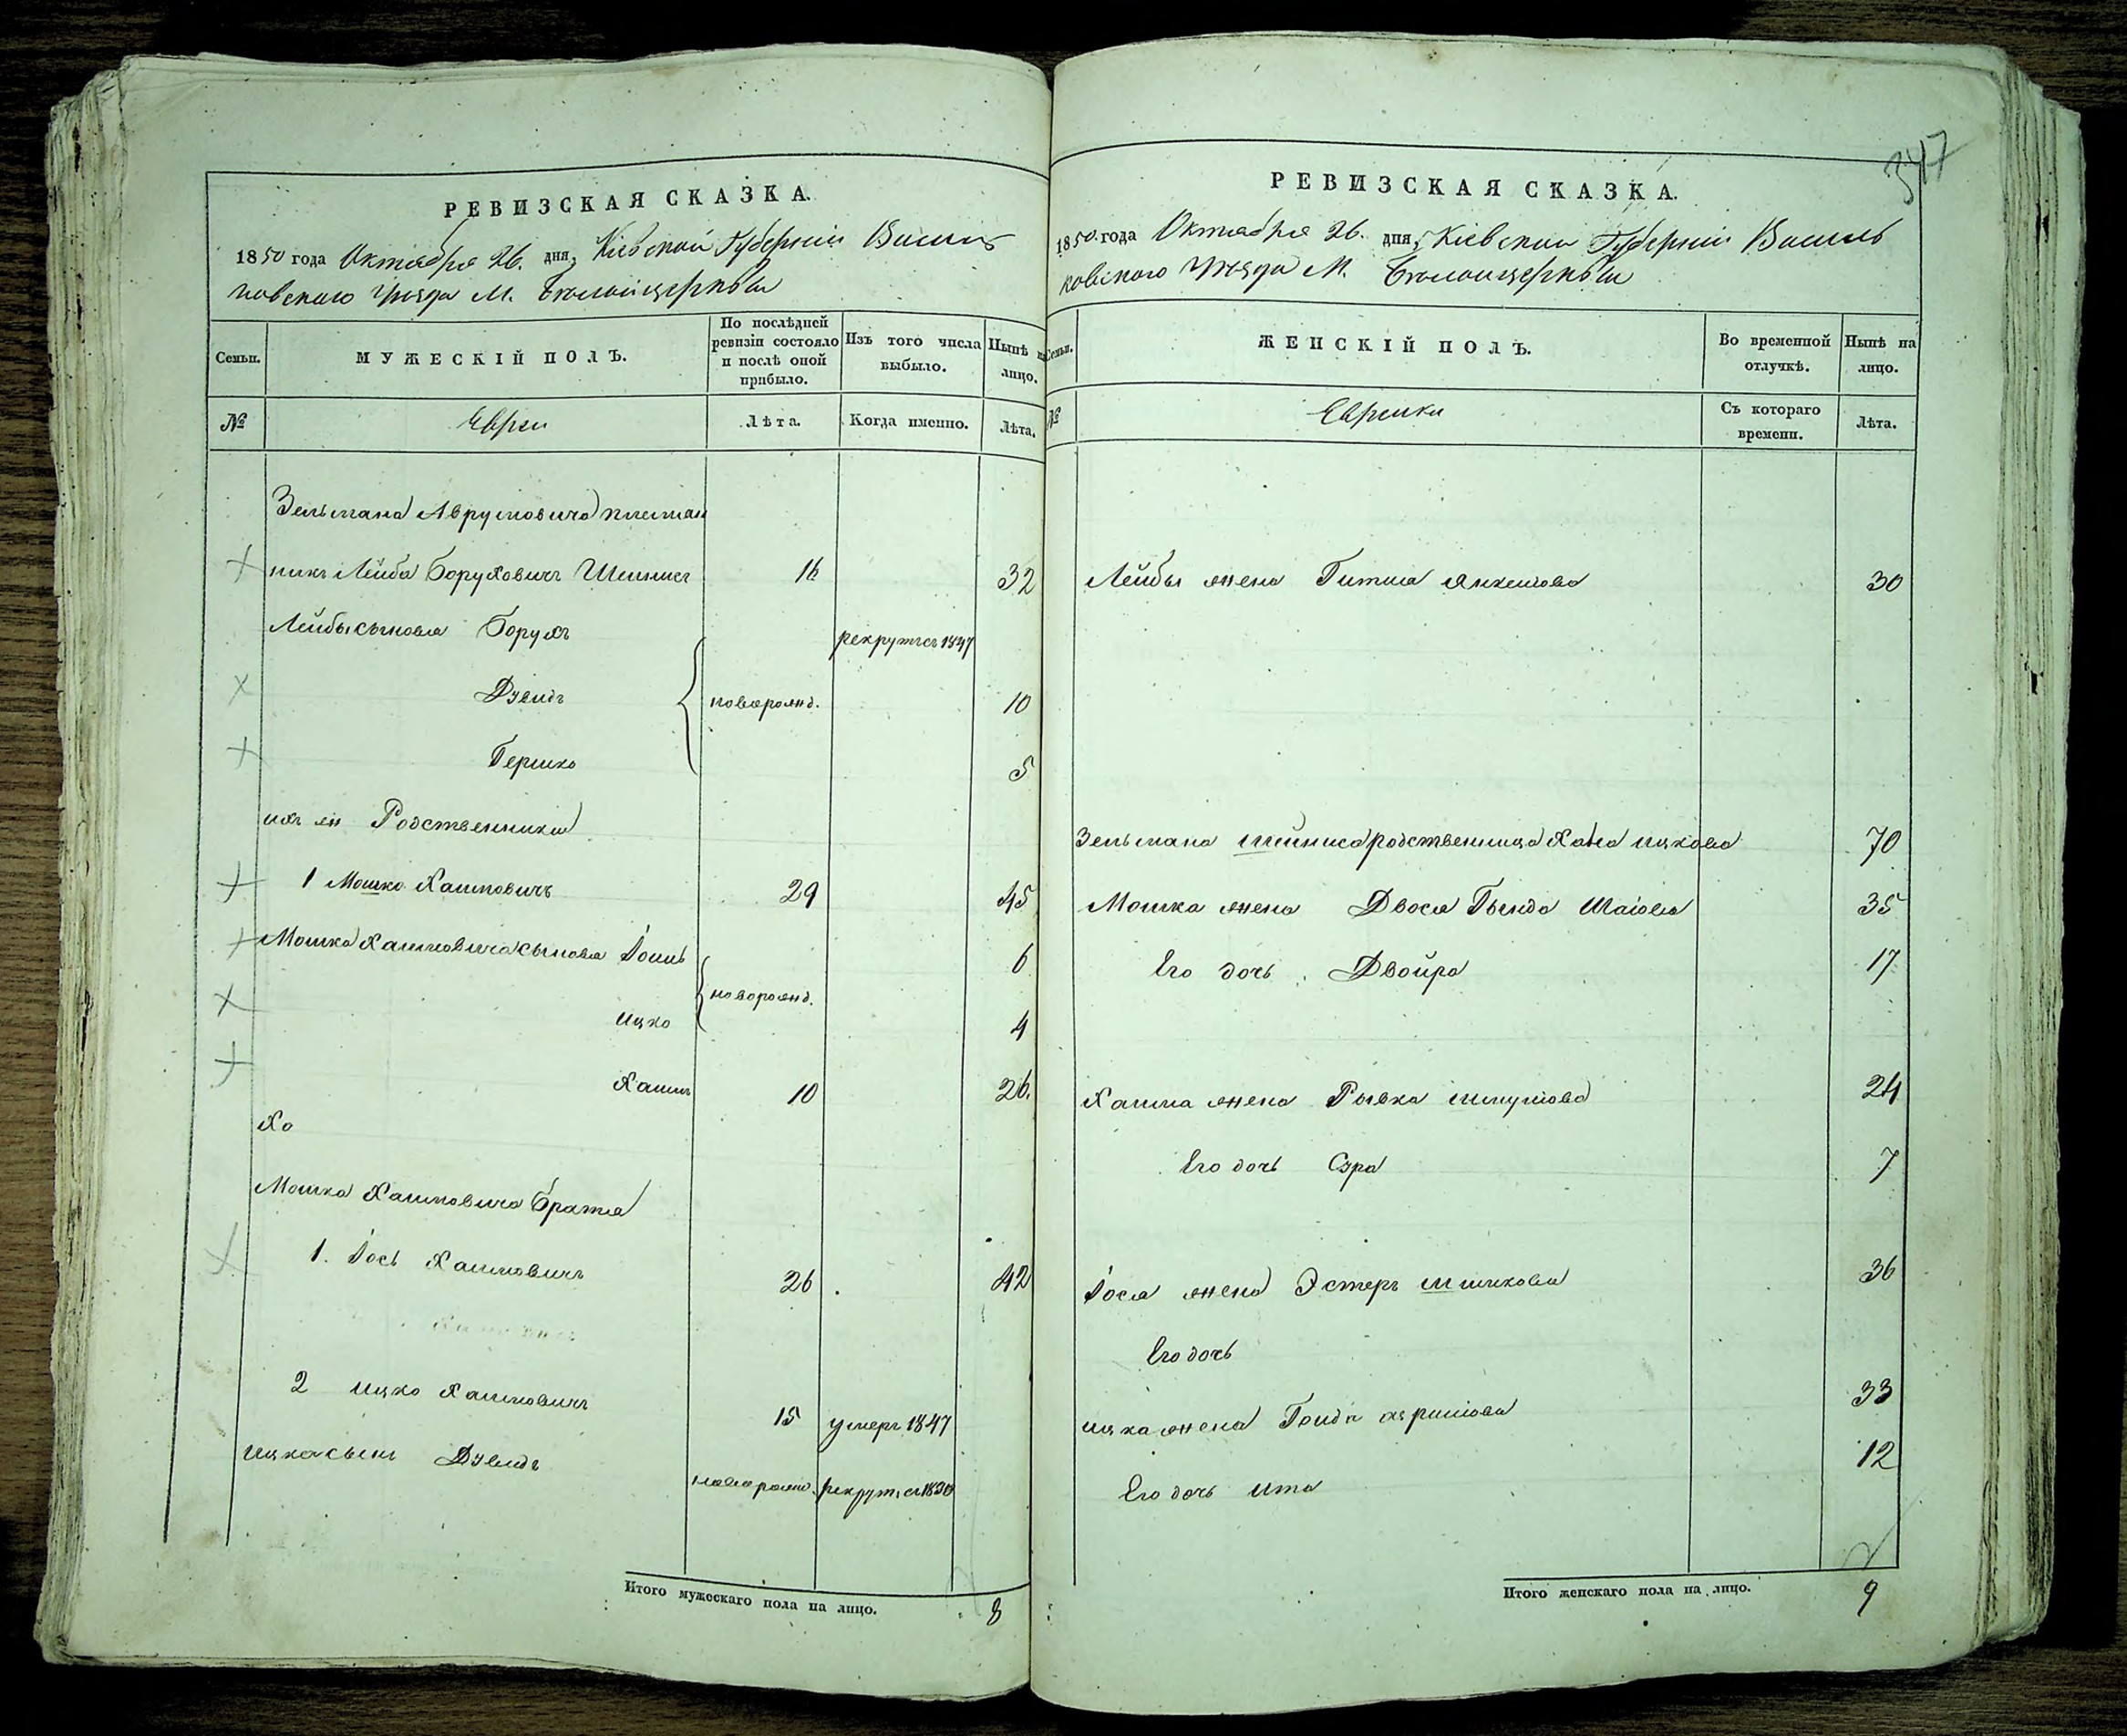 РЕВИЗСКАЯ СКАЗКА.
1850 года Октября 26. дня, Кіевской Губерніи Василь
ковскаго Уѣзда М. Бѣлойцеркви
Семьи.
МУЖЕСКІЙ ПОЛЪ.
По послѣдней ревизіи состояло и послѣ оной прибыло.
Изъ того числа выбыло.
Нынѣ на лицо.
№
Евреи
Лѣта.
Когда именно.
Лѣта.
Зельмана Аврумовича племян
никъ Лейба Боруховичъ Шейнисъ 16 32
Лейбы сыновья Борухъ рекрутъ съ 1847
Дувидъ новорожд. 10
Гершко 5
ихъ же Родственники
1 Мошко Хаимовичъ 29 45
Мошка Хаимовича сыновья Іошь 6
новорожд.
Ицко 4
Хаимъ 10 26.
Хо
Мошка Хаимовича братья
1. Іось Хаимовичъ 26 42
2 Ицко Хаимовичъ 15 умеръ 1847
Ицка сынъ Дувидъ новорожд. рекрут. съ 1850
Итого мужескаго пола на лицо. 8
347
РЕВИЗСКАЯ СКАЗКА.
1850 года Октября 26. дня, Кіевской Губерніи Василь
ковскаго Уѣзда М. Бѣлойцеркви
Семьи.
ЖЕНСКІЙ ПОЛЪ.
Во временной отлучкѣ.
Нынѣ на лицо.
№
Еврейки
Съ котораго времени.
Лѣта.
Лейбы жена Гитля Янкелева 30
Зельмана Шейниса родственница Хана Ицкова 70
Мошка жена Двося Гинда Шаіова 35
Его дочь Двойра 17
Хаима жена Рывка Шмулёва 24
Его дочь Сура 7
Іося жена Эстеръ 36
Его дочь
Ицка жена 33
Его дочь Ита 12
Итого женскаго пола на лицо. 9